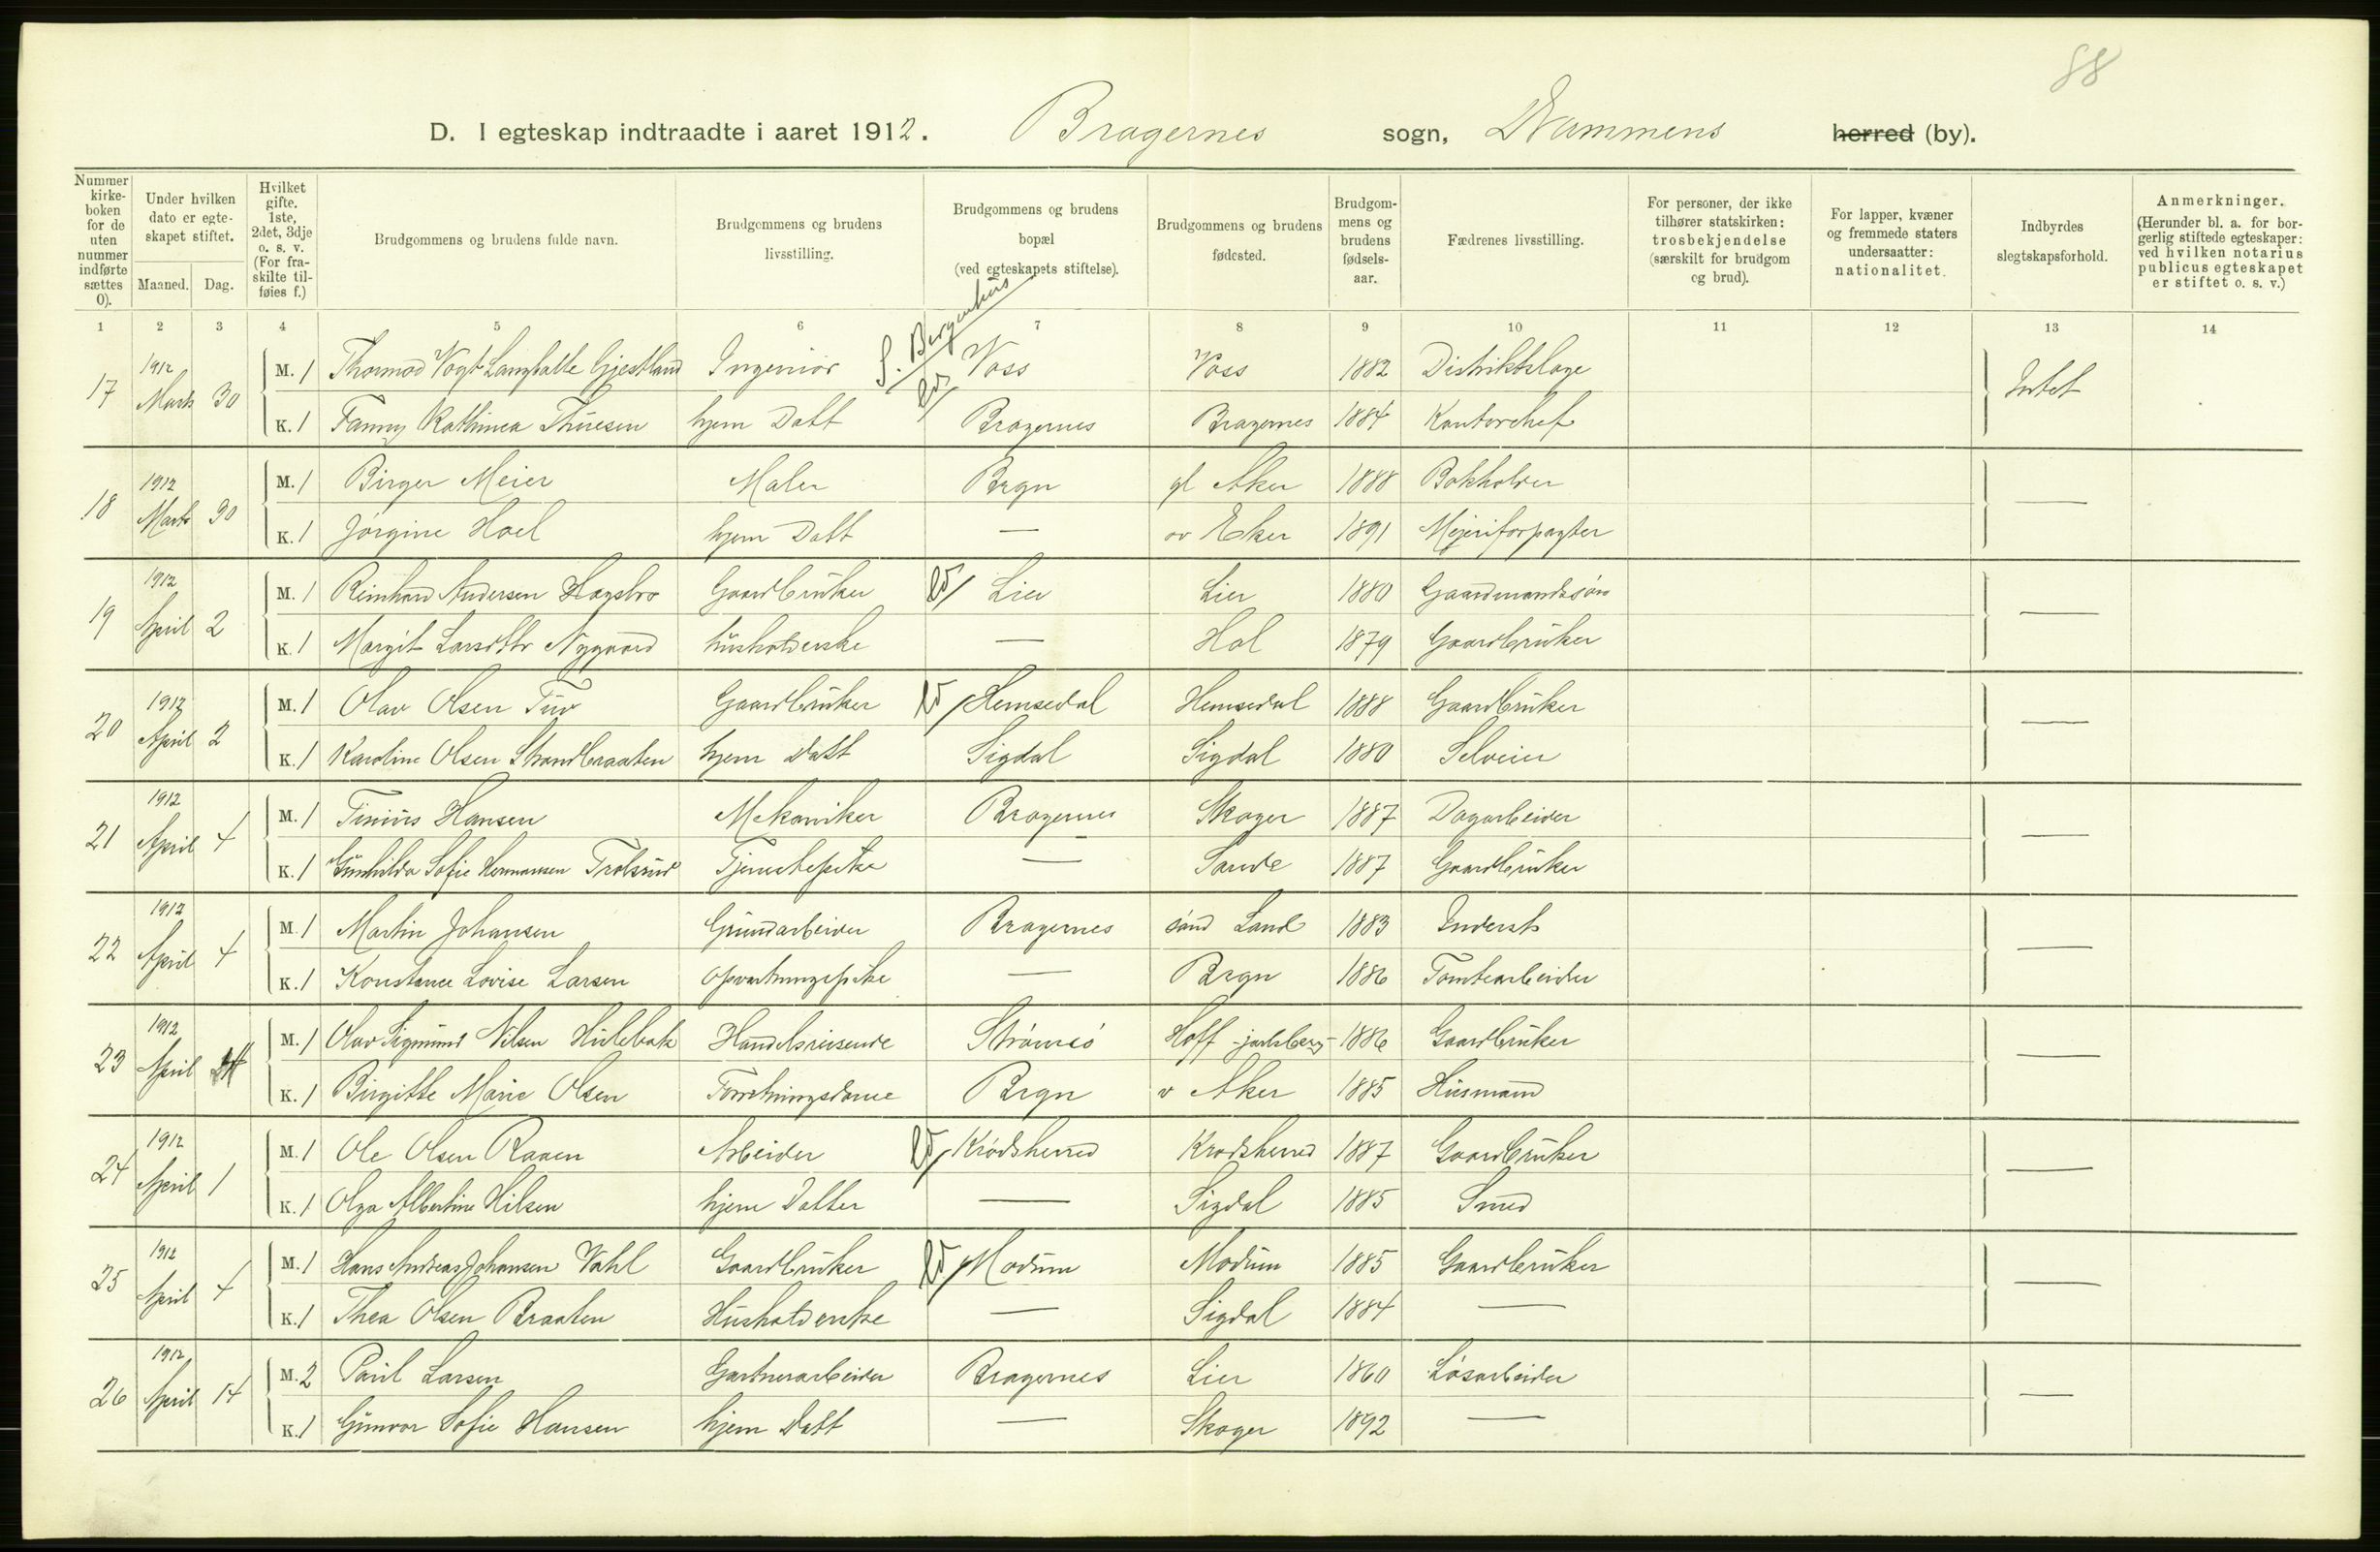 88
D. I egteskap indtraadte i aaret 1912. Bragernes sogn, Drammens herred (by).
Nummer kirkeboken for de uten nummer indførte sættes 0).
Under hvilken dato er egteskapet stiftet.
Maaned. Dag.
Hvilket gifte. 1ste, 2det, 3dje o. s. v. (For fraskilte tilføies f.)
Brudgommens og brudens fulde navn.
Brudgommens og brudens livsstilling.
Brudgommens og brudens bopæl (ved egteskapets stiftelse).
Brudgommens og brudens fødested.
Brudgommens og brudens fødselsaar.
Fædrenes livsstilling.
For personer, der ikke tilhører statskirken: trosbekjendelse (særskilt for brudgom og brud).
For lapper, kvæner og fremmede staters undersaatter: nationalitet.
Indbyrdes slegtskapsforhold.
Anmerkninger. (Herunder bl. a. for borgerlig stiftede egteskaper: ved hvilken notarius publicus egteskapet er stiftet o. s. v.)
1 2 3 4 5 6 7 8 9 10 11 12 13 14
S. Bergenhus
17 1912 Marts 30 M. 1 Thormod Vogt Gjestland Ingeniør Voss Voss 1882 Distriktslæge Intet
K. 1 Fanny Kathinca Thuesen hjem Datt Bragernes Bragernes 1884 Kontorchef
18 1912 Marts 30 M. 1 Birger Meier Maler Bragn gl Aker 1888 Bokholder —
K. 1 Jørgine Hoel hjem Datt — øv Eker 1891 Mejeriforpagter
19 1912 April 2 M. 1 Reinhard Andersen Gaardbruker Lier Lier 1880 Gaardmandssøn —
K. 1 Margit Larsdtr Nygaard husholderske — Hol 1879 Gaardbruker
20 1912 April 2 M. 1 Olav Olsen Tuv Gaardbruker Hemsedal Hemsedal 1888 Gaardbruker —
K. 1 Karoline Olsen Strandbraaten hjem Datt Sigdal Sigdal 1880 Selveier
21 1912 April 4 M. 1 Tinius Hansen Mekaniker Bragernes Skoger 1887 Dagarbeider —
K. 1 Gunhilda Sofie Hermansen Trolsrud Tjenestepike — Sande 1887 Gaardbruker
22 1912 April 4 M. 1 Martin Johansen Grundarbeider Bragernes sønd Land 1883 Inderst —
K. 1 Konstance Lovise Larsen Opvartningspike — Bragn 1886 Tomtearbeider
23 1912 April M. 1 Olav Sigmund Nilsen Hulebak Handelsreisende Strømsø Hoff - jarlsberg - 1886 Gaardbruker —
K. 1 Birgitte Marie Olsen Forretningsdame Bragn v Aker 1885 Husmand
24 1912 April 1 M. 1 Ole Olsen Raaen Arbeider Krødsherred Krødsherred 1887 Gaardbruker —
K. 1 Olga Albertine Hilsen hjem Datter — Sigdal 1885 Smed
25 1912 April 4 M. 1 Hans Andreas Johansen Vahl Gaardbruker Modum Modum 1885 Gaardbruker —
K. 1 Thea Olsen Braaten Husholderske — Sigdal 1884 —
26 1912 April 14 M. 2 Paul Larsen Gartnerarbeider Bragernes Lier 1860 Løsarbeider —
K. 1 Gunvor Sofie Hansen hjem Datt — Skoger 1892 —